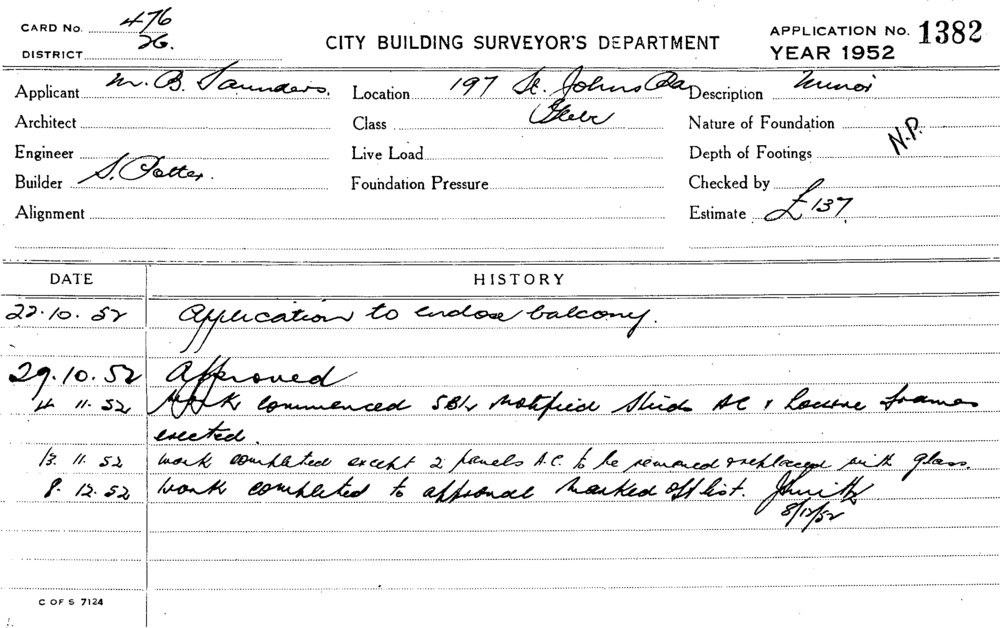 CARD No. 476
DISTRICT 26.
CITY BUILDING SURVEYOR'S DEPARTMENT
APPLICATION No. 1382
YEAR 1952
Applicant M. B. Saunders. Location 197 St. Johns Rd Description Minor
Architect Class Glebe Nature of Foundation
Engineer Live Load Depth of Footings N.P.
Builder S. Potter. Foundation Pressure Checked by
Alignment Estimate £137
DATE HISTORY
22.10.52 Application to enclose balcony.
29.10.52 Approved
4 11.52 Work commenced notified Studs AC & Louvre frames
erected.
13. 11. 52 work completed except 2 panels A.C. to be removed & replaced with glass.
8. 12. 52 work completed to approval marked off list. JSmith
8/12/52
C OF S 7124